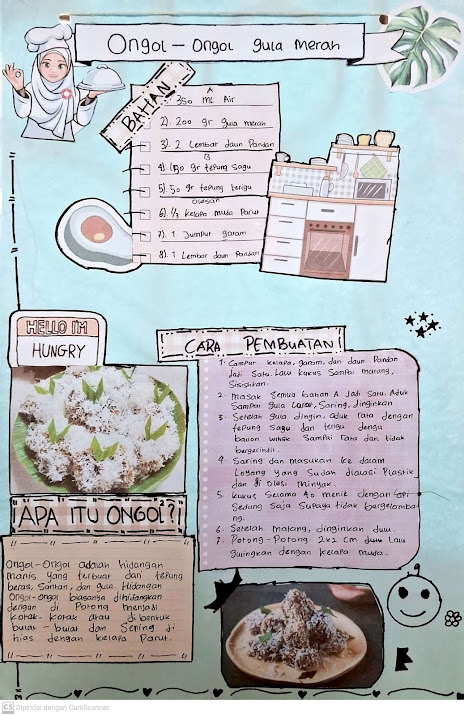 Ongol - Ongol gula merah
BAHAN
A
350 ml Air
2). 200 gr gula merah
3). 2 Lembar daun Pandan
B
4). 150 gr tepung sagu
5). 50 gr tepung terigu
Olesan
6). 1/2 kelapa muda Parut
7). 1 Jumput garam
8). 1 Lembar daun Pandan
HELLO I'M
HUNGRY
CARA PEMBUATAN
1. Campur kelapa, garam, dan daun Pandan
Jadi Satu. Lalu kukus Sampai matang,
Sisihkan.
2. masak Semua bahan A Jadi Satu. Aduk
Sampai gula Larut, Saring, dinginkan
3. Setelah gula dingin, aduk rata dengan
tepung Sagu dan terigu denga
bauan whisk Sampai rata dan tidak
bergerindil.
4. Saring dan masukan ke dalam
Loyang yang Sudah dialasi Plastik
dan di olesi minyak.
5. kukus Selama 40 menit dengan api
Sedang Saja Supaya tidak bergelomba
ng.
6. Setelah matang, dinginkan dulu.
7. Potong-Potong 2x2 cm dulu Lalu
gulingkan dengan kelapa muda.
APA ITU ONGOL?
Ongol-Ongol adalah hidangan
manis yang terbuat dari tepung
beras, Santan, dan gula. Hidangan
Ongol-ongol biasanya dihidangkan
dengan di Potong menjadi
kotak-kotak atau dibentuk
bulat-bulat dan Sering di
hias dengan kelapa Parut.
CS Dipindai dengan CamScanner